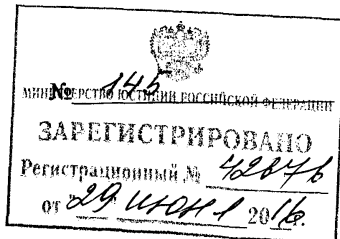 № 145
МИНИСТЕРСТВО ЮСТИЦИИ РОССИЙСКОЙ ФЕДЕРАЦИИ
ЗАРЕГИСТРИРОВАНО
Регистрационный № 42676
от "29" июня 2016г.